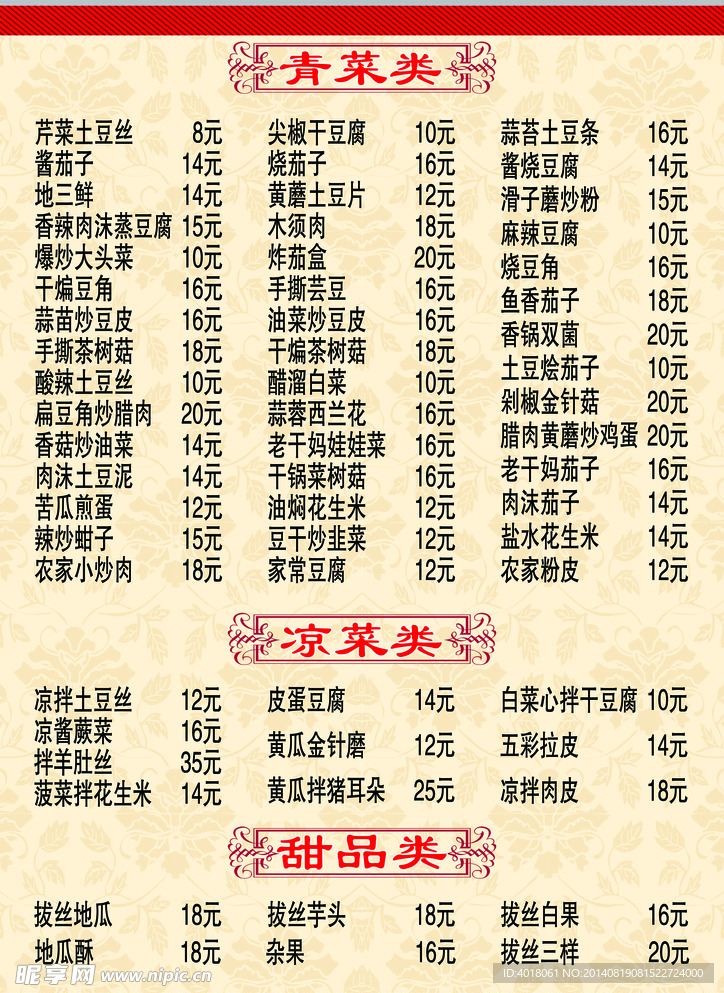 青菜类
芹菜土豆丝 8元
酱茄子 14元
地三鲜 14元
香辣肉沫蒸豆腐 15元
爆炒大头菜 10元
干煸豆角 16元
蒜苗炒豆皮 16元
手撕茶树菇 18元
酸辣土豆丝 10元
扁豆角炒腊肉 20元
香菇炒油菜 14元
肉沫土豆泥 14元
苦瓜煎蛋 12元
辣炒蚶子 15元
农家小炒肉 18元
尖椒干豆腐 10元
烧茄子 16元
黄蘑土豆片 12元
木须肉 18元
炸茄盒 20元
手撕芸豆 16元
油菜炒豆皮 16元
干煸茶树菇 18元
醋溜白菜 10元
蒜蓉西兰花 16元
老干妈娃娃菜 16元
干锅菜树菇 16元
油焖花生米 12元
豆干炒韭菜 12元
家常豆腐 12元
蒜苔土豆条 16元
酱烧豆腐 14元
滑子蘑炒粉 15元
麻辣豆腐 10元
烧豆角 16元
鱼香茄子 18元
香锅双菌 20元
土豆烩茄子 10元
剁椒金针菇 20元
腊肉黄蘑炒鸡蛋 20元
老干妈茄子 16元
肉沫茄子 14元
盐水花生米 14元
农家粉皮 12元
凉菜类
凉拌土豆丝 12元
凉酱蕨菜 16元
拌羊肚丝 35元
菠菜拌花生米 14元
皮蛋豆腐 14元
黄瓜金针磨 12元
黄瓜拌猪耳朵 25元
白菜心拌干豆腐 10元
五彩拉皮 14元
凉拌肉皮 18元
甜品类
拔丝地瓜 18元
地瓜酥 18元
拔丝芋头 18元
杂果 16元
拔丝白果 16元
拔丝三样 20元
昵享网 www.nipic.cn
ID:4018061 NO:20140819081522724000